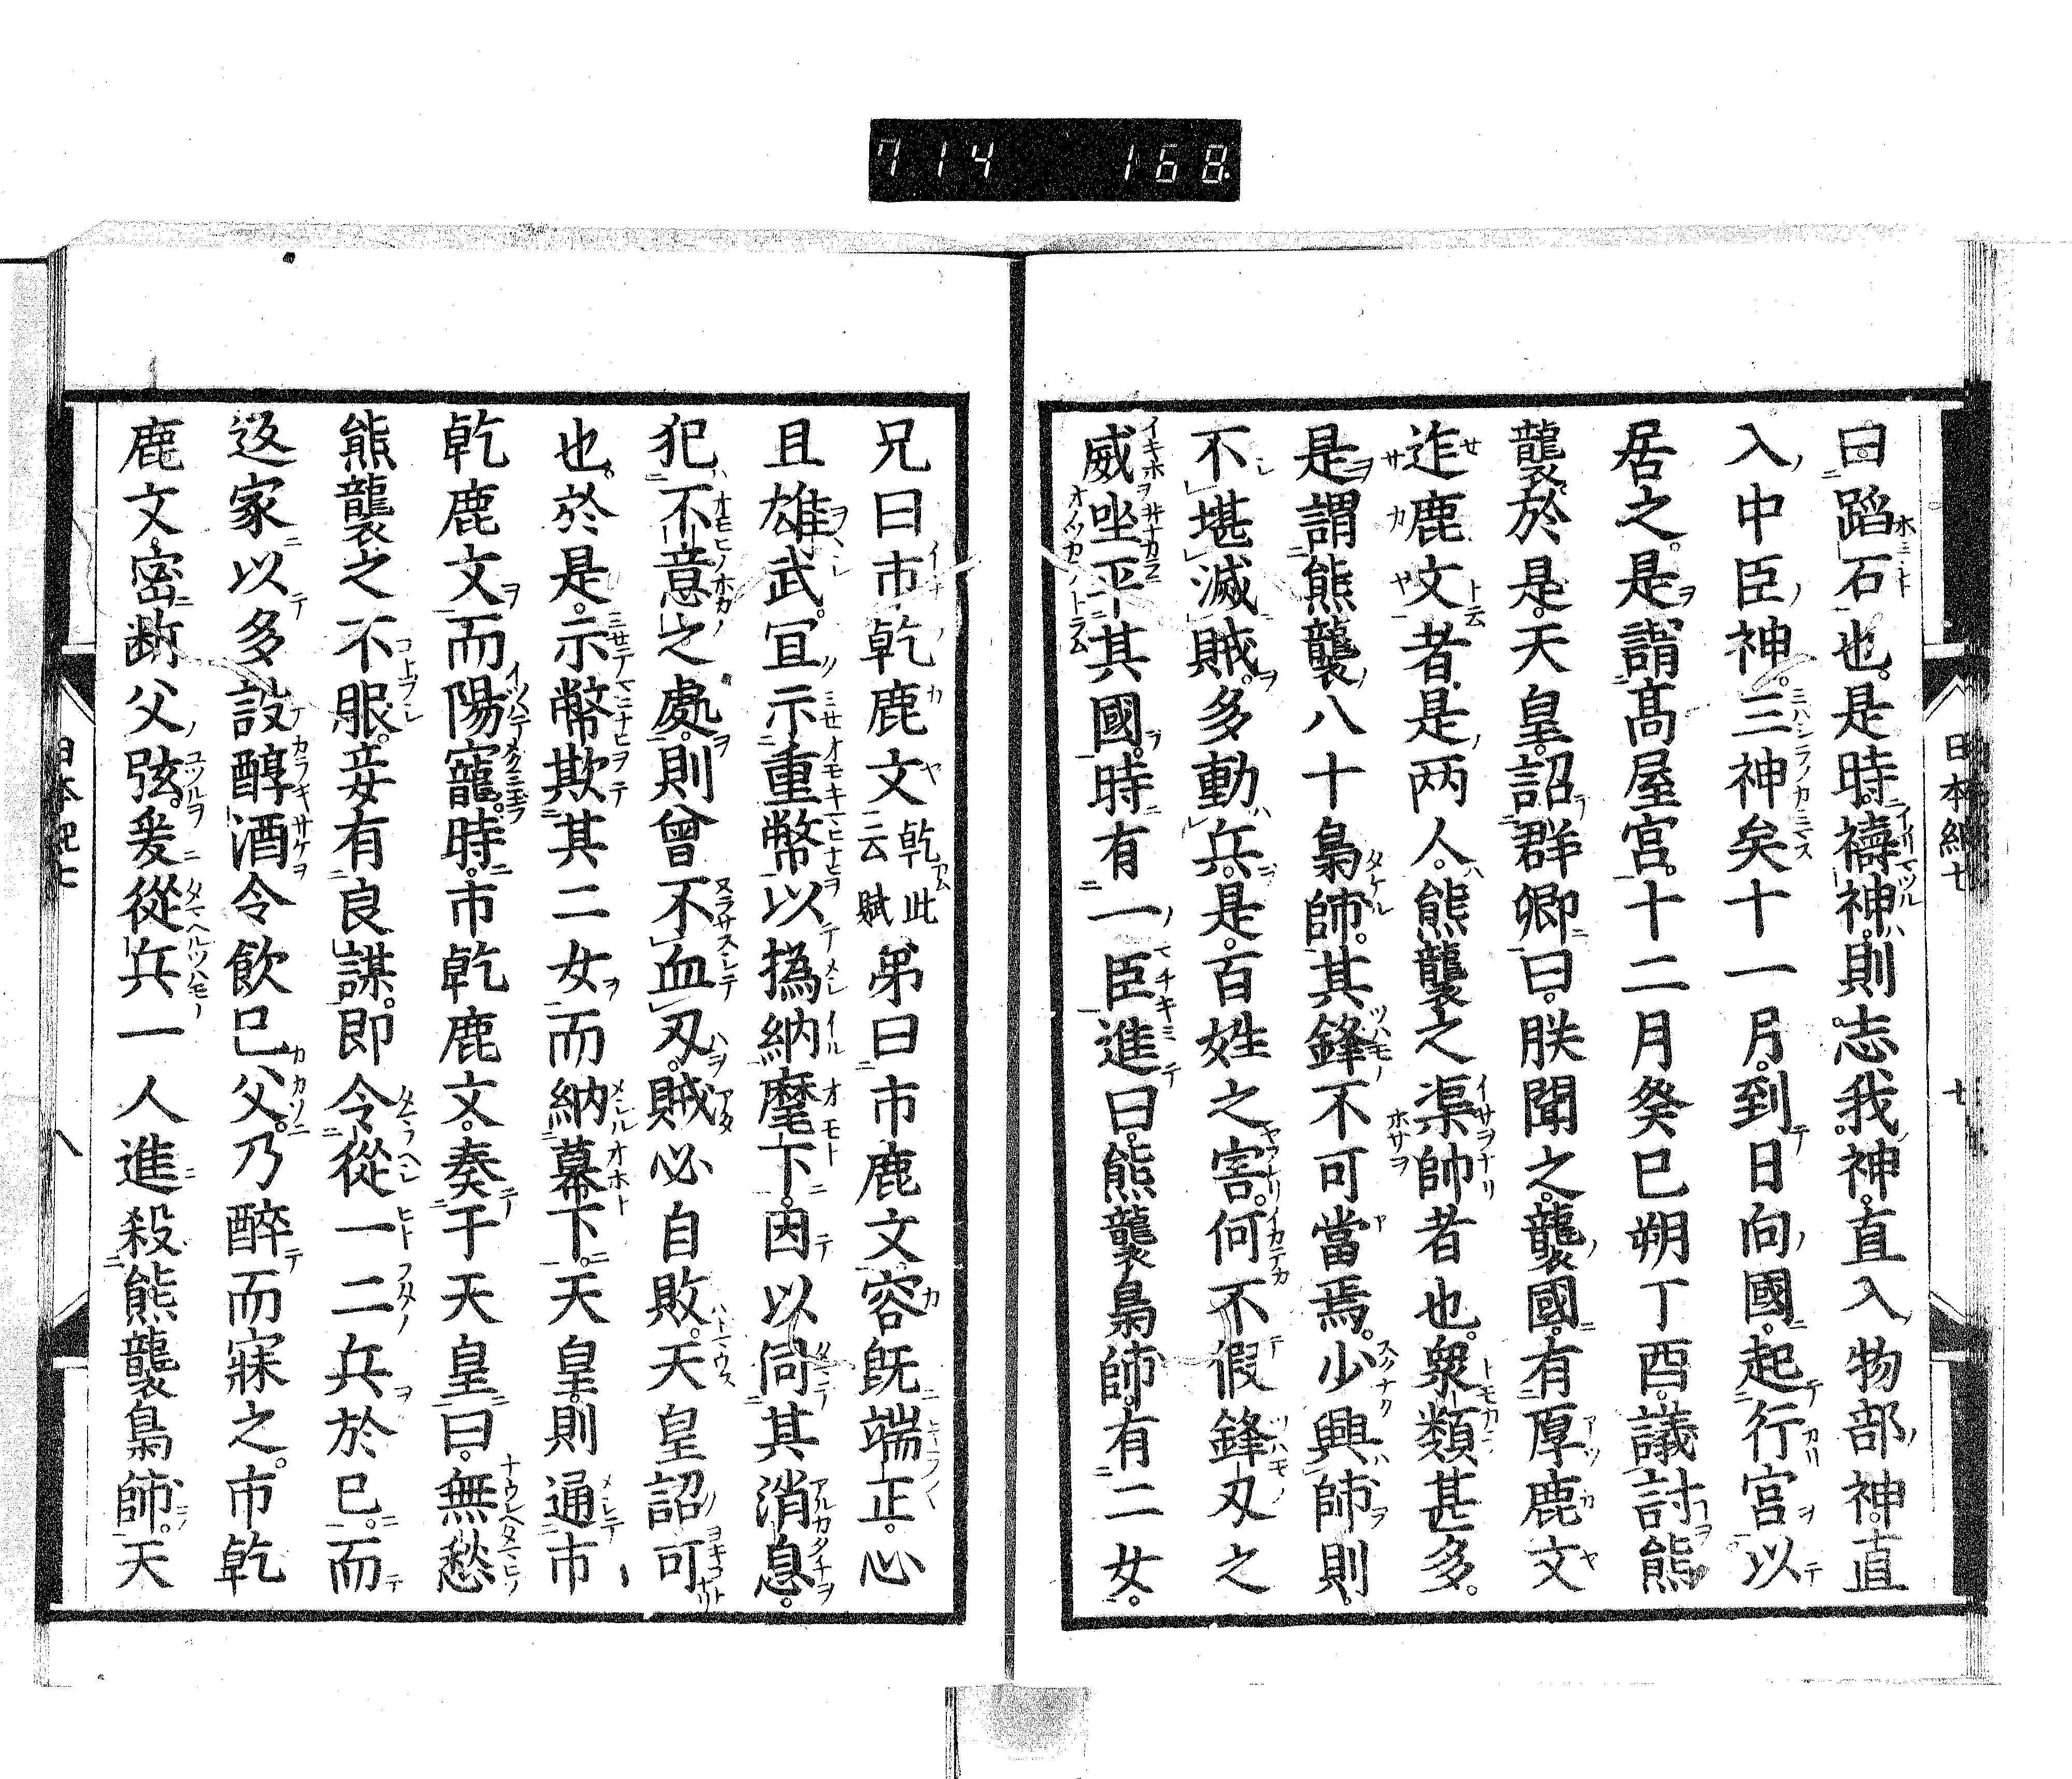 714 168
日本紀七 七
曰蹈石也是時禱神則志我神直入物部神直
入中臣神三神矣十一月到日向國起行宮以
居之是謂髙屋宮十二月癸巳朔丁酉議討熊
襲於是天皇詔群卿曰朕聞之襲國有厚鹿文
迮鹿文者是两人熊襲之渠帥者也衆類甚多
是謂熊襲八十梟師其鋒不可當焉少興師則
不堪滅賊多動兵是百姓之害何不假鋒刃之
威坐平其國時有一臣進曰熊襲梟師有二女
兄曰市乾鹿文乾此云賦弟曰市鹿文容既端正心
且雄武冝示重幣以撝納麾下因以伺其消息
犯不意之處則曾不血刃賊必自敗天皇詔可
也於是示幣欺其二女而納幕下天皇則通市
乾鹿文而陽寵時市乾鹿文奏于天皇曰無愁
熊襲之不服妾有良謀即令從一二兵於已而
返家以多設醇酒令飲已父乃醉而寐之市乾
鹿文密断父弦爰從兵一人進殺熊襲梟師天
日本紀七 八